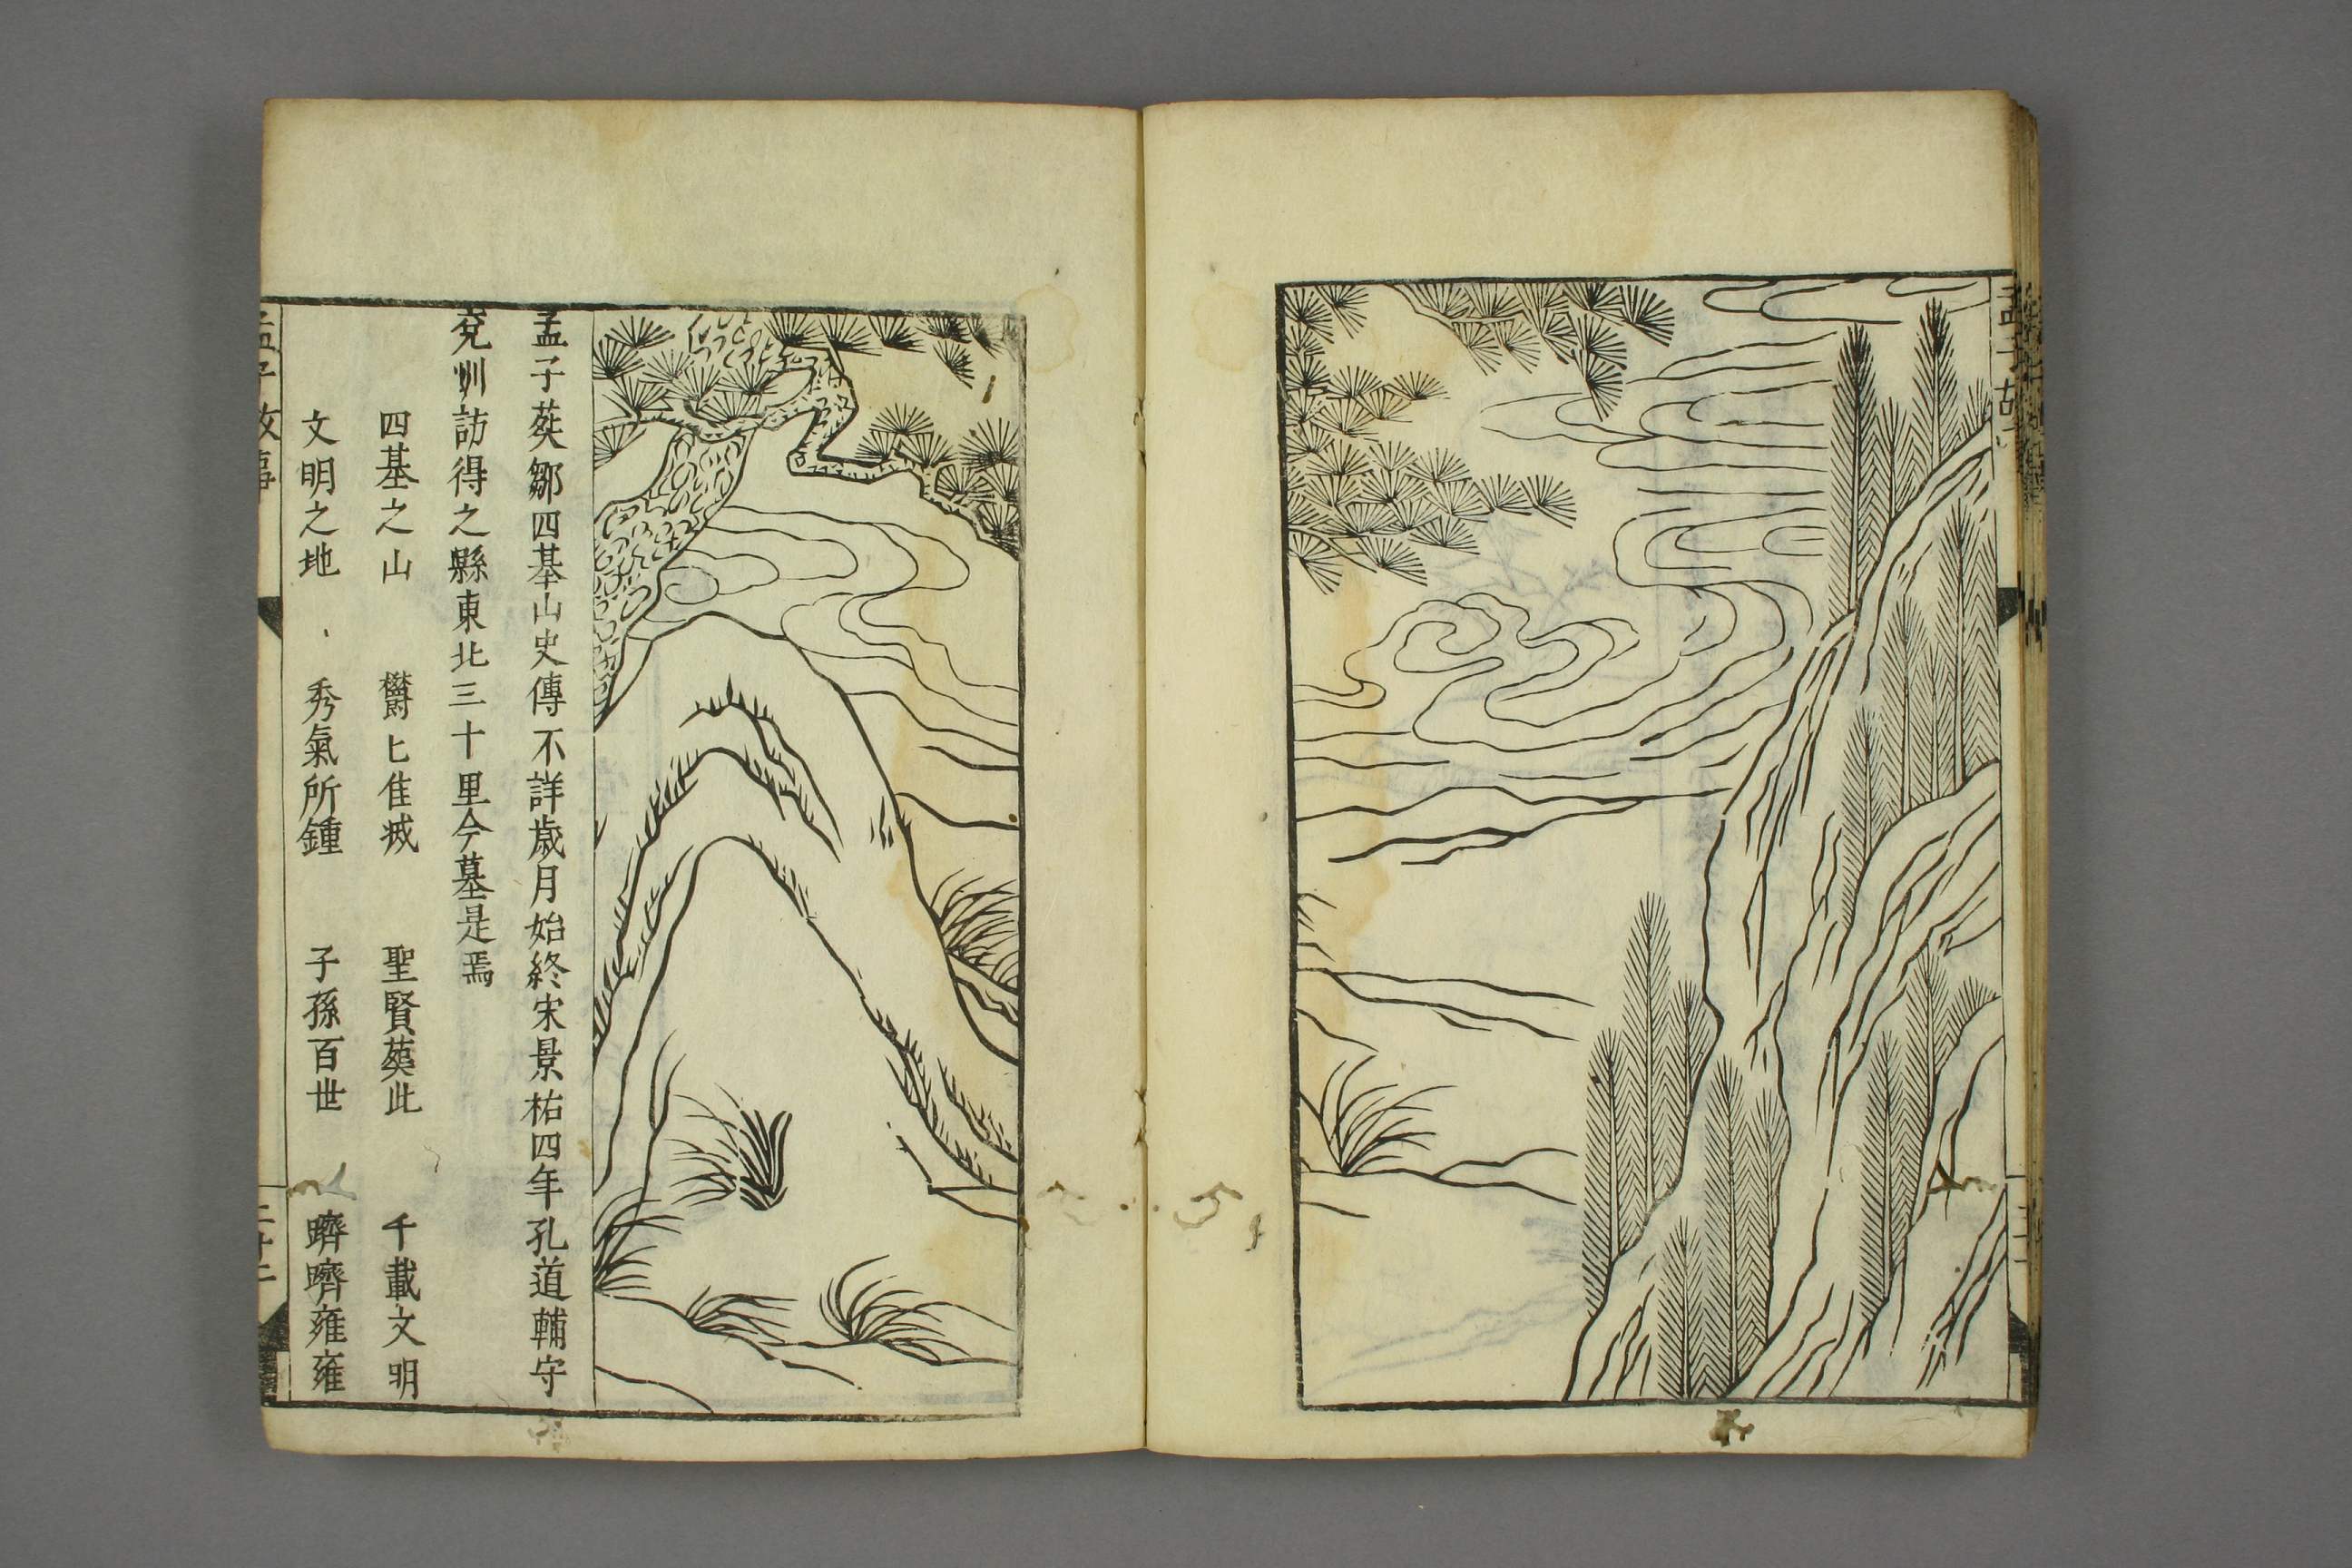 孟子故
孟子葬鄒四基山史傳不詳歲月始終宋景祐四年孔道輔守
兗州訪得之縣東北三十里今墓是焉
四基之山 欝匕佳城 聖賢葬此 千載文明
文明之地 秀氣所鍾 子孫百世 躋躋雍雍
孟子故事
二十二